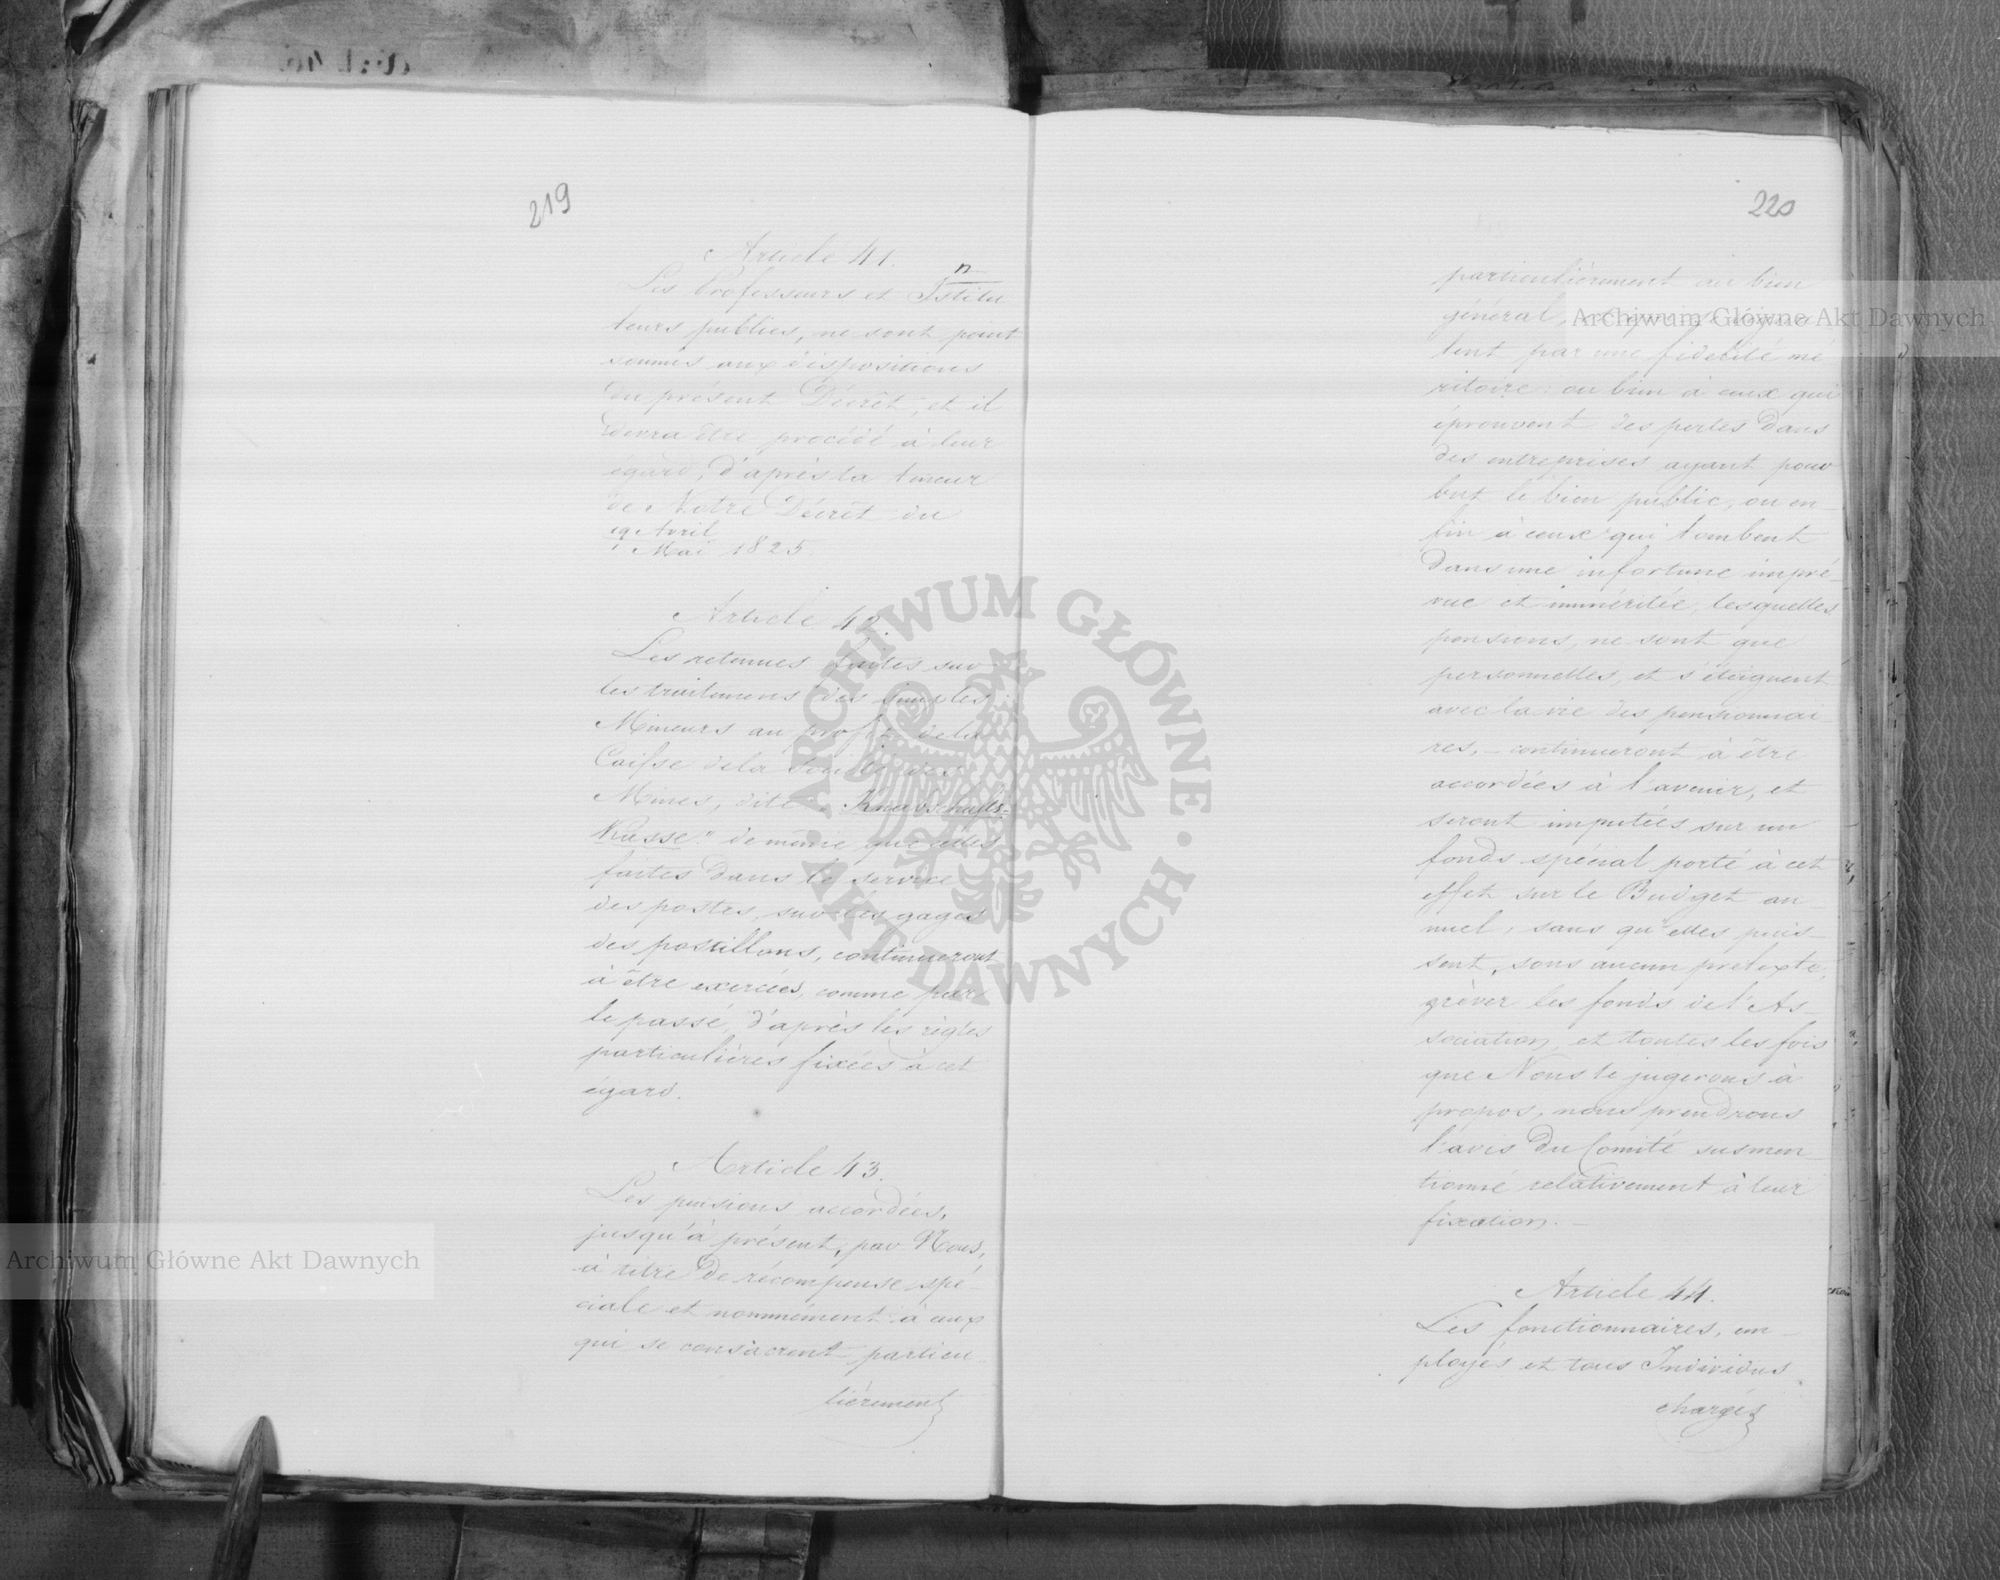 219
Article 41.
Les Professeurs et Institu
teurs publics, ne sont point
soumis aux dispositions
du présent Décrêt, et il
devra être procédé à leur
égard, d'après la teneur
de Notre Décrêt du
19 Avril
1 Mai 1825.
Article 42.
Les retenues faites sur
les traitemens des simples
Mineurs au profit de la
Caisse de la des
Mines, dite "Knabschafts-
Kasse" de même que celles
faites dans le service
des postes, sur les gages
des postillons, continueront
à être exercées, comme par
le passé, d'après les règles
particulières fixées à cet
égard.
Article 43.
Les pensions accordées,
jusqu'à présent, par Nous,
à titre de récompense spé-
ciale et nommément à ceux
qui se consacrent particu
lièrement
220
particulièrement au bien
général,
tent par une fidélité mé
ritoire: ou bien à ceux qui
éprouvent des pertes dans
des entreprises ayant pour
but le bien public, ou en-
fin à ceux qui tombent
dans une infortune impré-
vue et imméritée, lesquelles
pensions, ne sont que
personnelles, et s'éteignent
avec la vie des pensionnai
res, - continueront à être
accordées à l'avenir, et
seront imputées sur un
fonds spécial porté à cet
effet sur le Budget an-
nuel, sans qu'elles puis-
sent, sous aucun prétexte,
grêver les fonds de l'As-
sociation, et toutes les fois
que Nous le jugerons à
propos, nous prendrons
l'avis du Comité susmen-
tionné relativement à leur
fixation. -
Article 44.
Les fonctionnaires, em-
ployés et tous Individus
chargés
Archiwum Główne Akt Dawnych
Archiwum Główne Akt Dawnych
ARCHIWUM GŁÓWNE AKT DAWNYCH